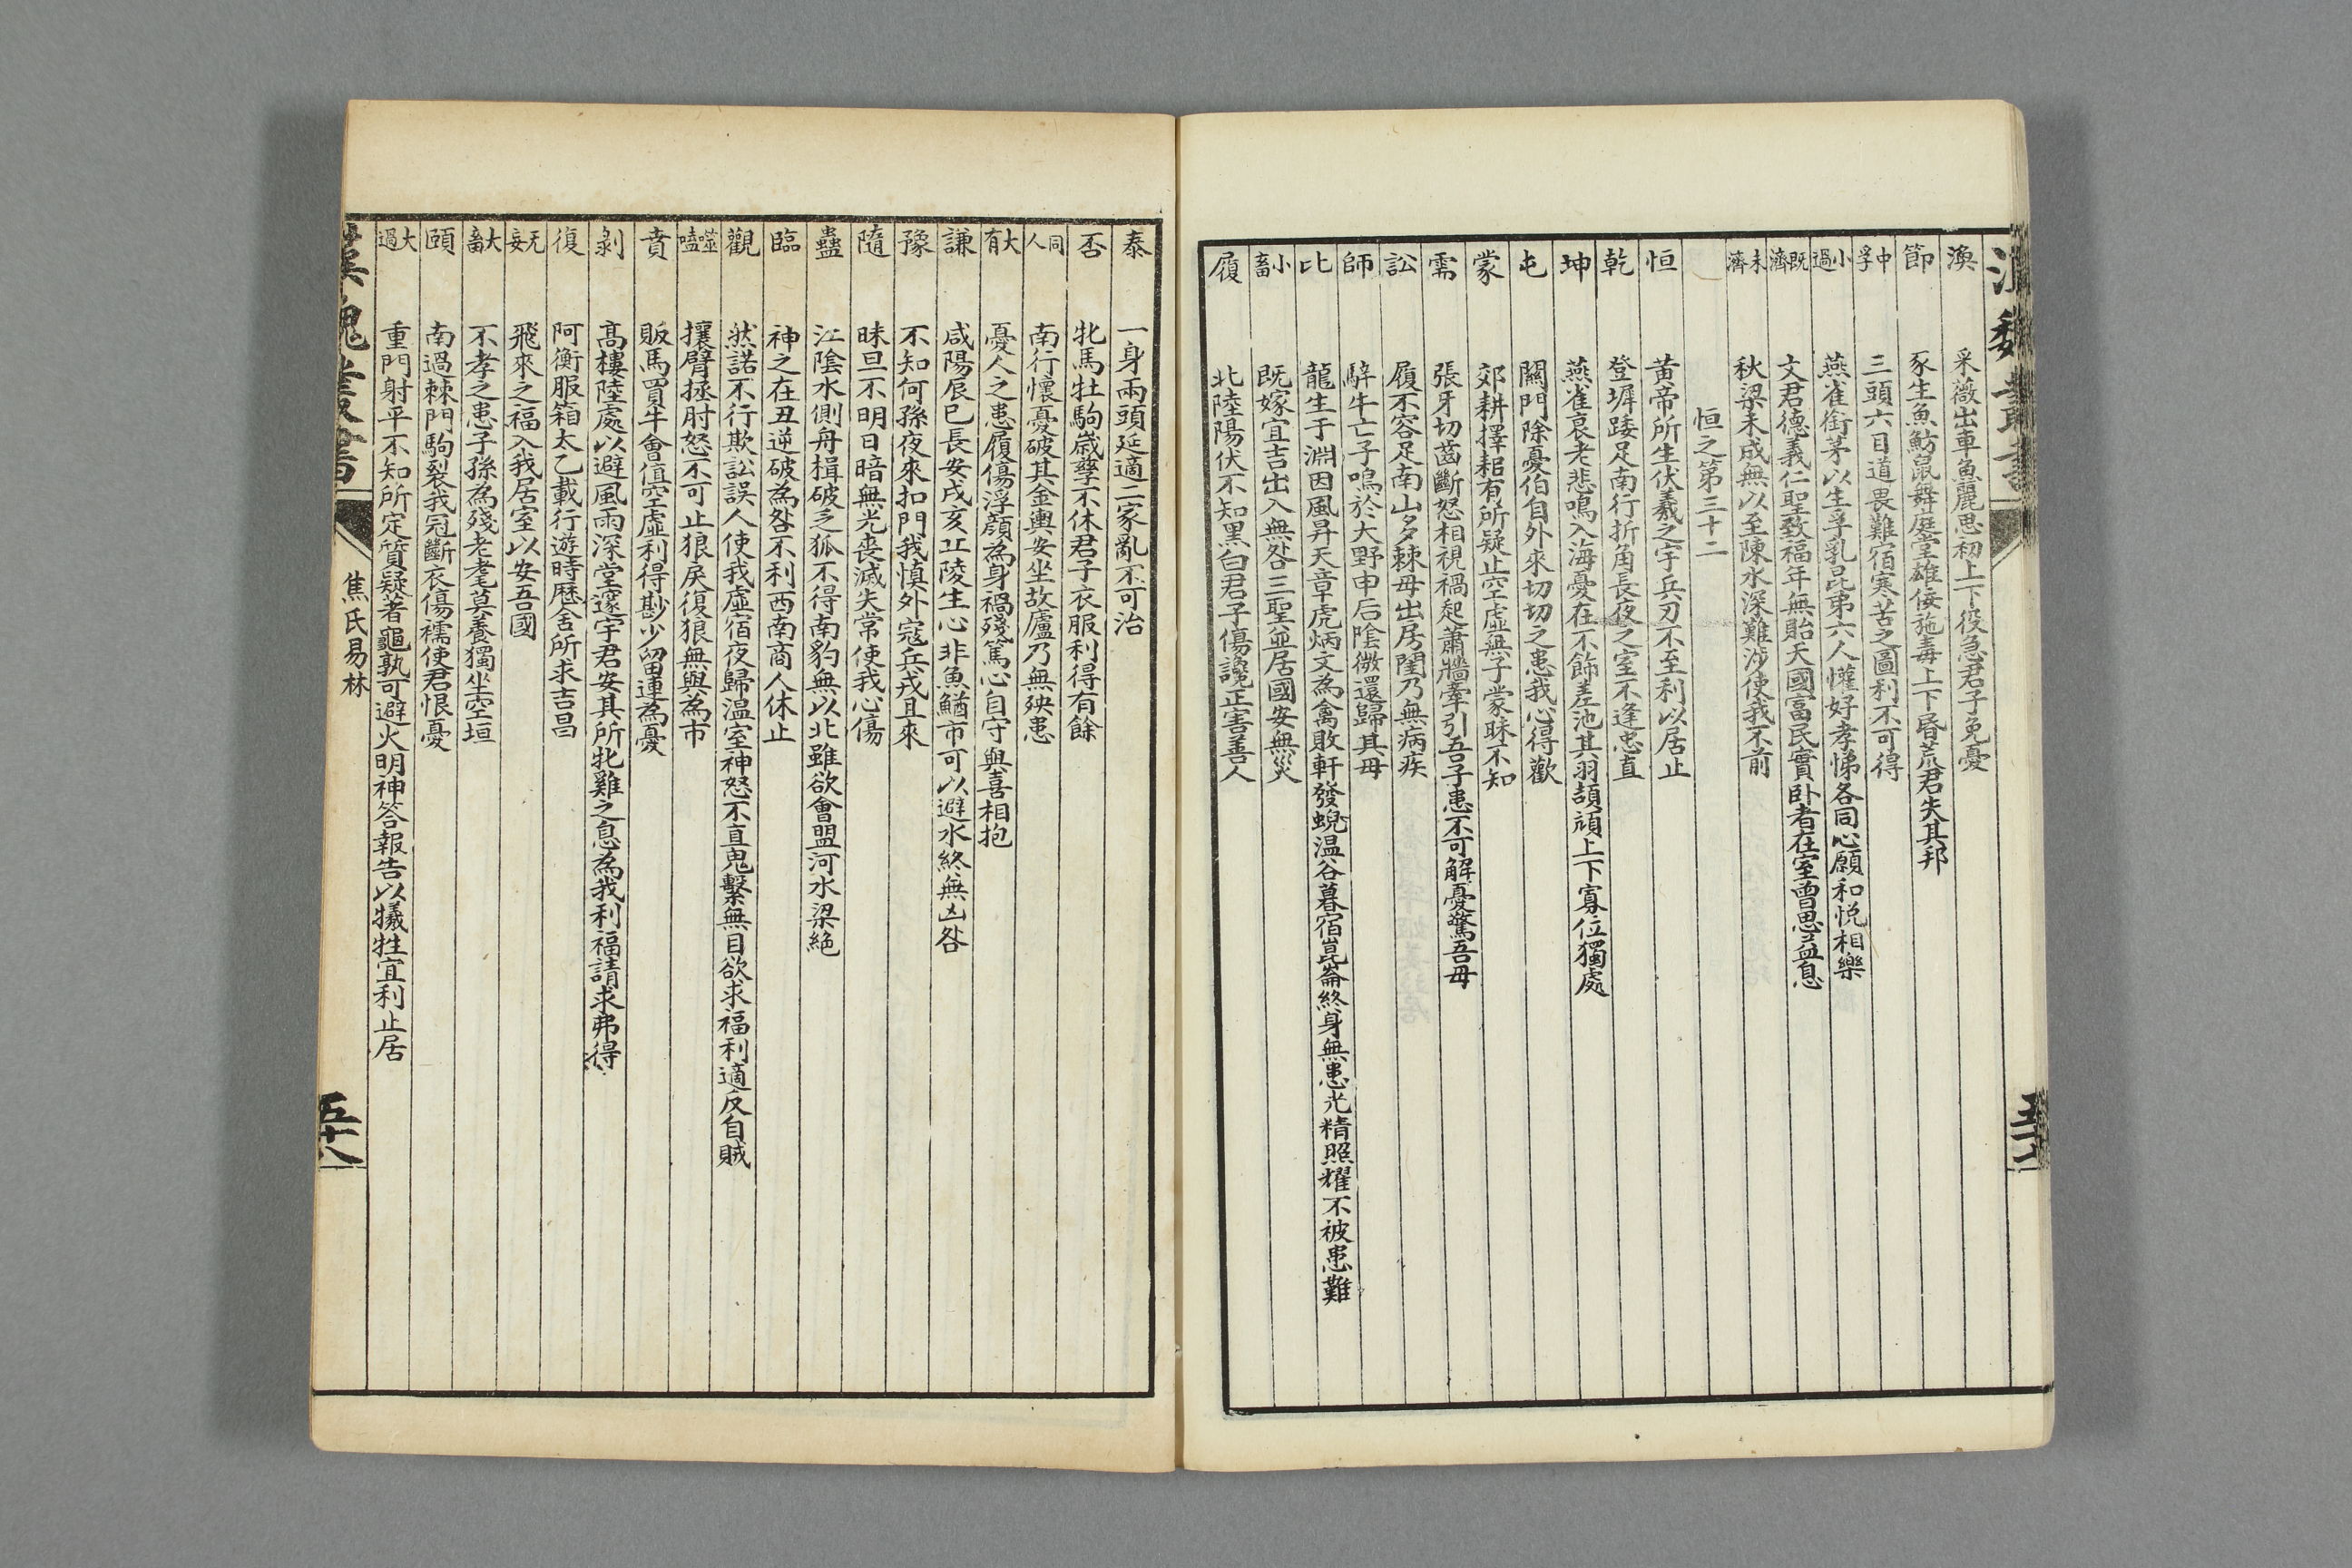 渙 采薇出車魚麗思初上下役急君子免憂
節 豕生魚魴鼠舞庭堂雄佞施毒上下昏荒君失其邦
中孚 三頭六目道畏難宿寒苦之國利不可得
小過 燕雀銜茅以生孚乳昆弟六人懽好孝悌各同心願和悅相樂
既濟 文君德義仁聖致福年無貽天國富民實卧者在室曾思益息
未濟 秋梁未成無以至陳水深難涉使我不前
恒之第三十二
恒 黃帝所生伏羲之宇兵刃不至利以居止
乾 登墀踒足南行折角長夜之室不逢忠直
坤 燕雀哀老悲鳴入海憂在不飾差池其羽頡頏上下寡位獨處
屯 闗門除憂伯自外來切切之患我心得歡
蒙 郊耕擇耜有所疑止空虛無子蒙昧不知
需 張牙切齒斷怒相視禍起蕭牆牽引吾子患不可解憂驚吾母
訟 履不容足南山多棘毋出房闈乃無病疾
師 騂牛亡子鳴於大野申后陰微還歸其母
比 龍生于淵因風昇天章虎炳文為禽敗軒發蜺温谷暮宿崑崙終身無患光精照耀不被患難
小畜 既嫁宜吉出入無咎三聖並居國安無災
履 北陸陽伏不知黑白君子傷讒正害善人
五十七
泰 一身兩頭延適二家亂不可治
否 牝馬牡駒歲孳不休君子衣服利得有餘
同人 南行懷憂破其金輿安坐故廬乃無殃患
大有 憂人之患履傷浮顔為身禍殘篤心自守與喜相抱
謙 咸陽辰巳長安戌亥丘陵生心非魚鰌市可以避水終無凶咎
豫 不知何孫夜來扣門我慎外寇兵戎且來
隨 昧旦不明日暗無光喪滅失常使我心傷
蠱 江陰水側舟楫破乏狐不得南豹無以北雖欲會盟河水梁絶
臨 神之在丑逆破為咎不利西南商人休止
觀 然諾不行欺訟誤人使我虛宿夜歸温室神怒不直鬼擊無目欲求福利適反自賊
噬嗑 攘臂拯肘怒不可止狼戾復狼無與為市
賁 販馬買牛會值空虛利得尠少留連為憂
剝 髙樓陸處以避風雨深堂邃宇君安其所牝雞之息為我利福請求弗得
復 阿衡服箱太乙載行遊時歷舍所求吉昌
无妄 飛來之福入我居室以安吾國
大畜 不孝之患子孫為殘老耄莫養獨坐空垣
頤 南過棘門駒裂我冠斷衣傷襦使君恨憂
大過 重門射平不知所定質疑蓍龜孰可避火明神答報告以犧牲宜利止居
漢魏叢書 焦氏易林 五十八